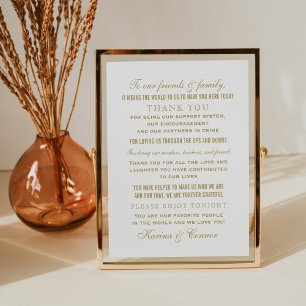 To our friends & family,
IT MEANS THE WORLD TO US TO HAVE YOU HERE TODAY
THANK YOU
FOR BEING OUR SUPPORT SYSTEM,
OUR ENCOURAGEMENT
AND OUR PARTNERS IN CRIME
FOR LOVING US THROUGH THE UPS AND DOWNS
For being our mentors, teachers, and friends
THANK YOU FOR ALL THE LOVE AND
LAUGHTER YOU HAVE CONTRIBUTED
TO OUR LIVES
YOU HAVE HELPED TO MAKE US WHO WE ARE
AND FOR THAT, WE ARE FOREVER GRATEFUL
PLEASE ENJOY TONIGHT
YOU ARE OUR FAVORITE PEOPLE
IN THE WORLD AND WE LOVE YOU!
Karina & Connor